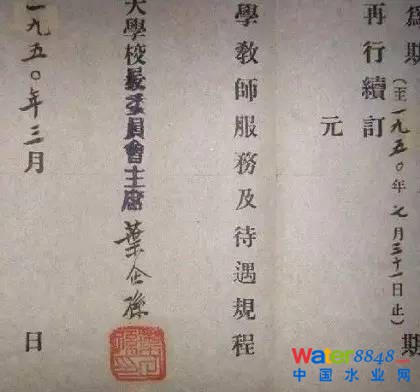 為期(至一九五〇年七月三十一日止)期
再行續訂
元
學教師服務及待遇規程
大學校委員會主席 葉企孫
一九五〇年三月 日
Water8848.com
中国水业网